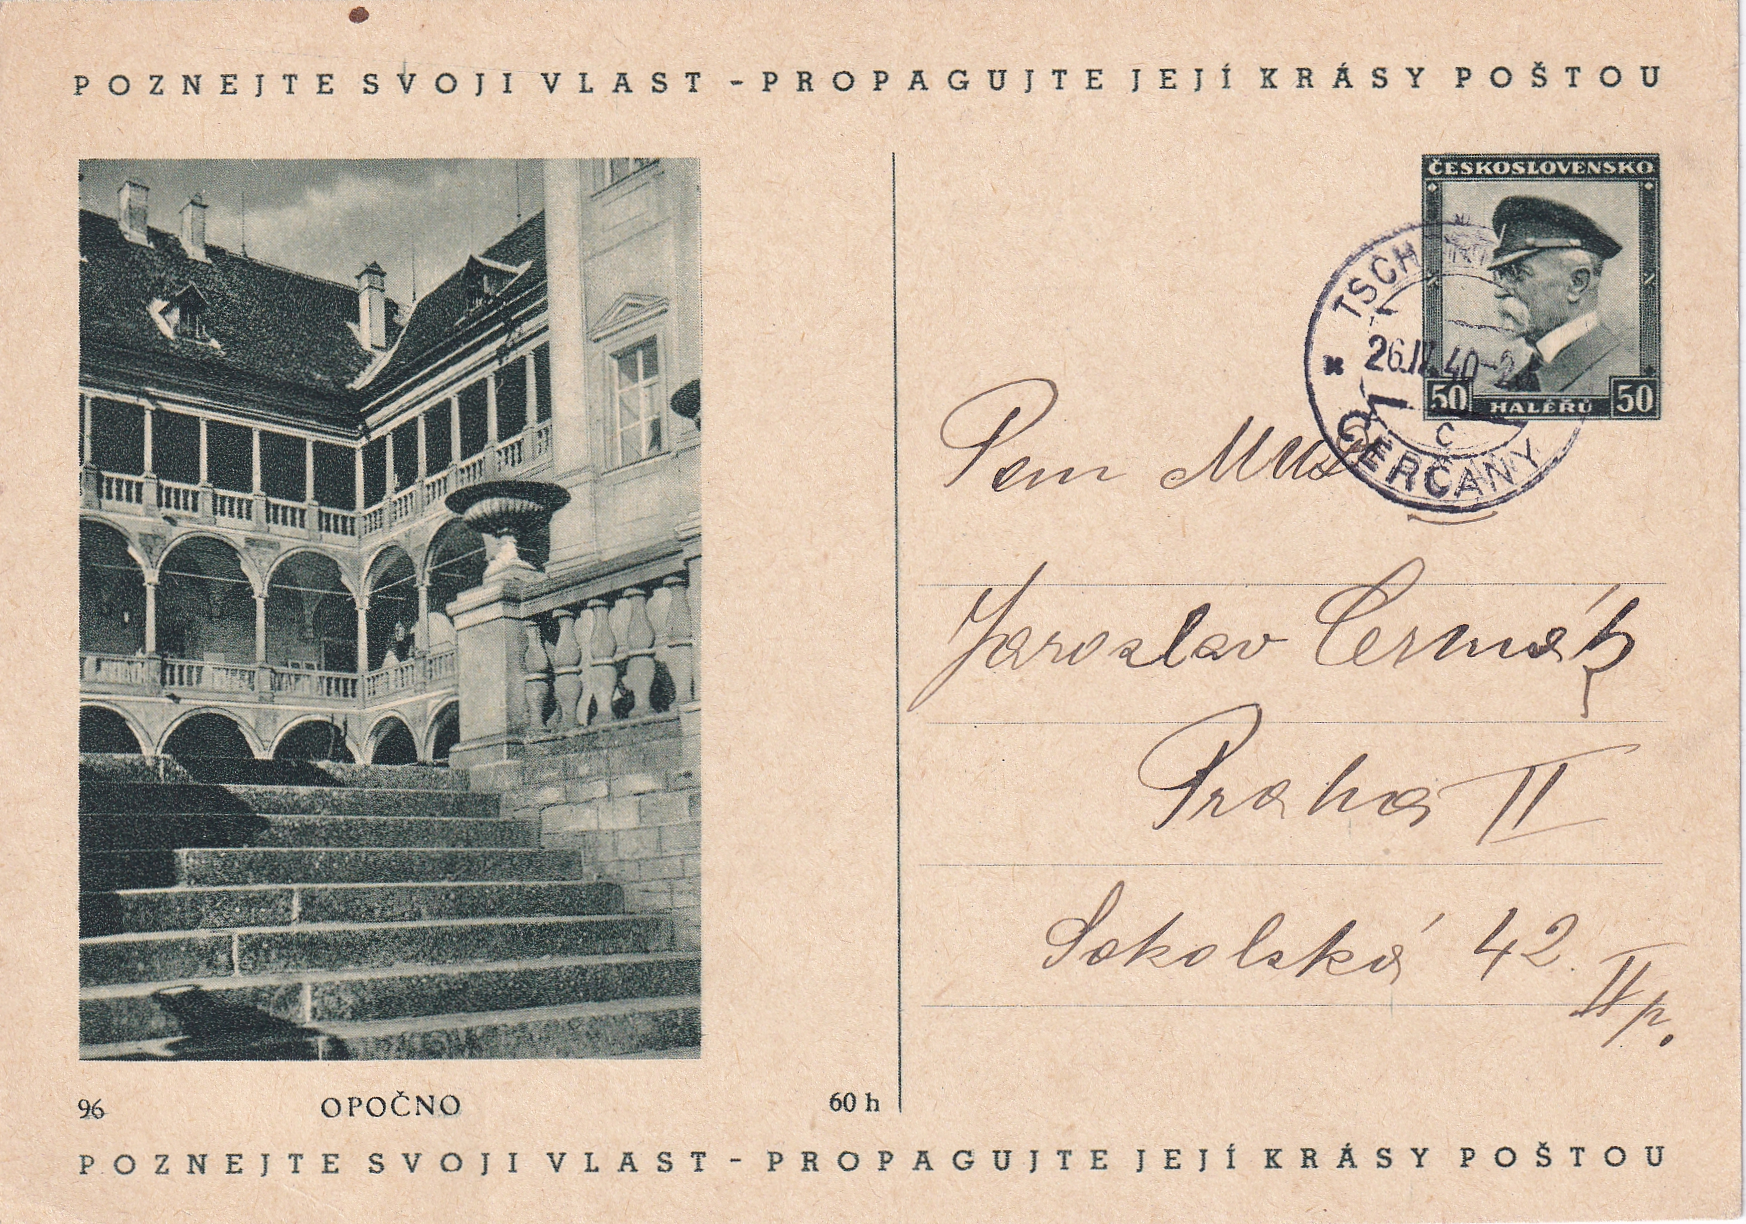 POZNEJTE SVOJI VLAST - PROPAGUJTE JEJÍ KRÁSY POŠTOU
ČESKOSLOVENSKO
50 HALÉŘŮ 50
TSCH
26.II.40-
C
ČERČANY
Pan
Jaroslav Čermák
Praha II
Sokolská 42
II p.
96 OPOČNO 60 h
POZNEJTE SVOJI VLAST - PROPAGUJTE JEJÍ KRÁSY POŠTOU